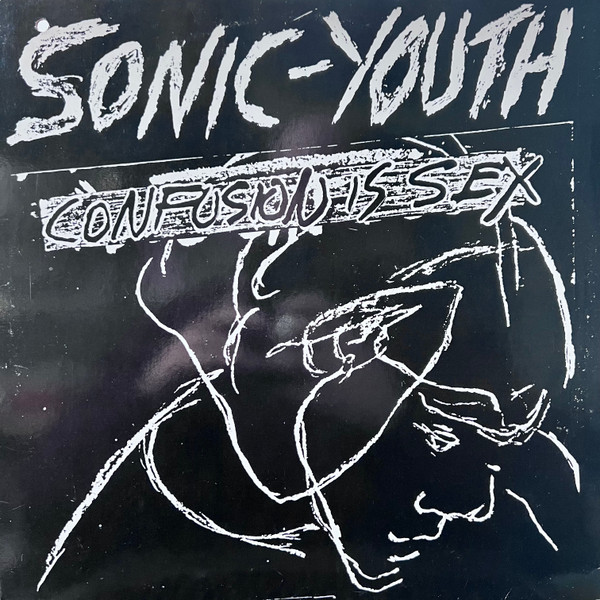 SONIC-YOUTH
CONFUSION IS SEX